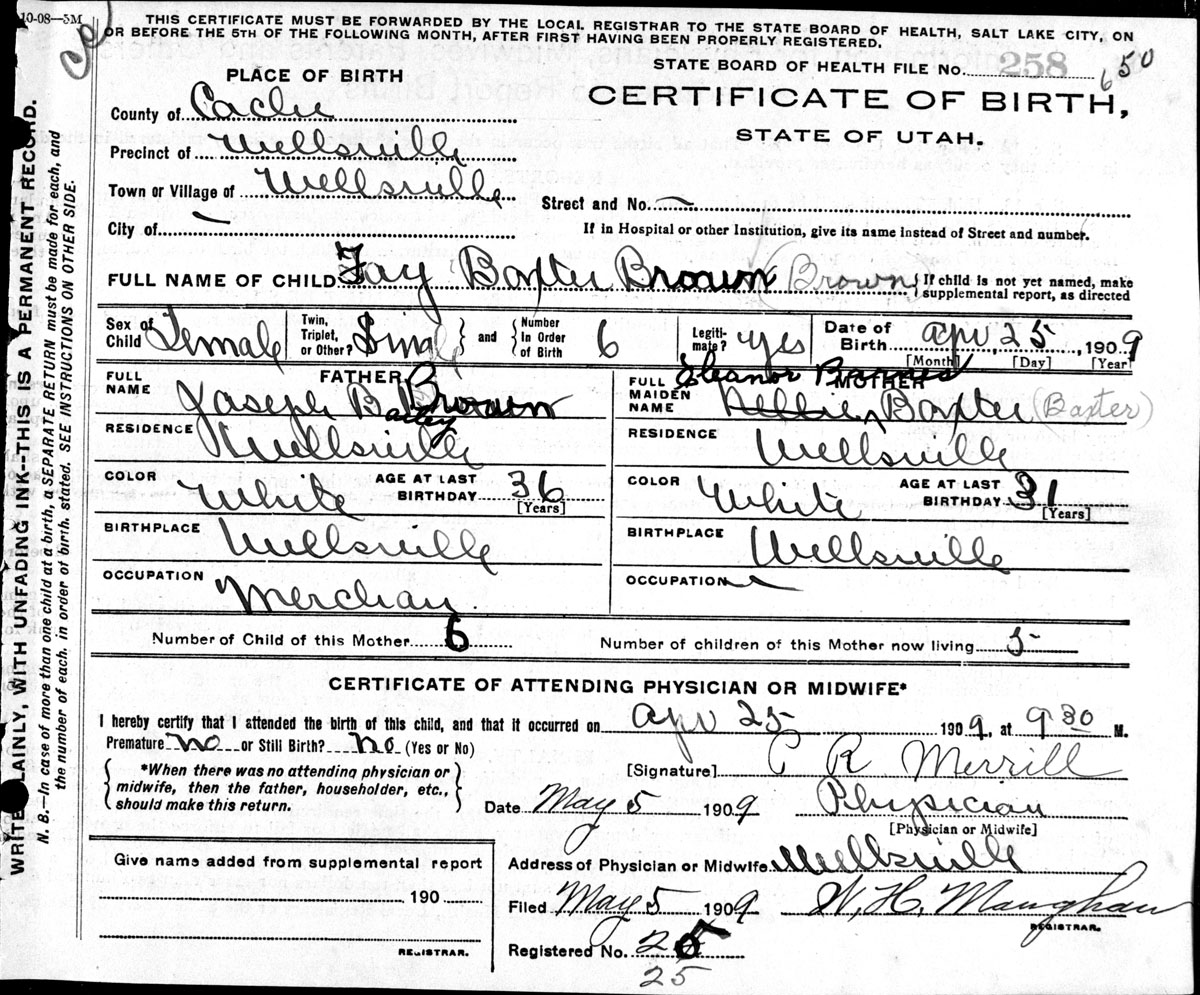 10-08—5M
THIS CERTIFICATE MUST BE FORWARDED BY THE LOCAL REGISTRAR TO THE STATE BOARD OF HEALTH, SALT LAKE CITY, ON
OR BEFORE THE 5TH OF THE FOLLOWING MONTH, AFTER FIRST HAVING BEEN PROPERLY REGISTERED.
STATE BOARD OF HEALTH FILE No. 258 650
PLACE OF BIRTH
CERTIFICATE OF BIRTH,
STATE OF UTAH.
County of Cache
Precinct of Wellsville
Town or Village of Wellsville
Street and No. —
City of —
If in Hospital or other Institution, give its name instead of Street and number.
FULL NAME OF CHILD Fay Baxter Brown (Brown) { If child is not yet named, make
supplemental report, as directed
Sex of Child Female
Twin, Triplet, or Other? Single } and { Number In Order of Birth 6
Legiti- mate? Yes
Date of Birth Apr 25, 1909
[Month] [Day] [Year]
FATHER
FULL NAME Joseph Bailey Brown
RESIDENCE Wellsville
COLOR White AGE AT LAST BIRTHDAY 36 [Years]
BIRTHPLACE Wellsville
OCCUPATION Merchan
MOTHER
FULL MAIDEN NAME Eleanor Barnes Nellie Baxter (Baxter)
RESIDENCE Wellsville
COLOR White AGE AT LAST BIRTHDAY 31 [Years]
BIRTHPLACE Wellsville
OCCUPATION —
Number of Child of this Mother 6 Number of children of this Mother now living 5
CERTIFICATE OF ATTENDING PHYSICIAN OR MIDWIFE*
I hereby certify that I attended the birth of this child, and that it occurred on Apr 25 1909, at 9 30 M.
Premature No or Still Birth? No (Yes or No)
{ *When there was no attending physician or
midwife, then the father, householder, etc.,
should make this return. }
[Signature] C R Merrill
Date May 5 1909 Physician
[Physician or Midwife]
Give name added from supplemental report
190
REGISTRAR.
Address of Physician or Midwife Wellsville
Filed May 5 1909 W. H. Maughan
REGISTRAR.
Registered No. 25
25
WRITE PLAINLY, WITH UNFADING INK--THIS IS A PERMANENT RECORD.
N. B.—In case of more than one child at a birth, a SEPARATE RETURN must be made for each, and
the number of each, in order of birth, stated. SEE INSTRUCTIONS ON OTHER SIDE.